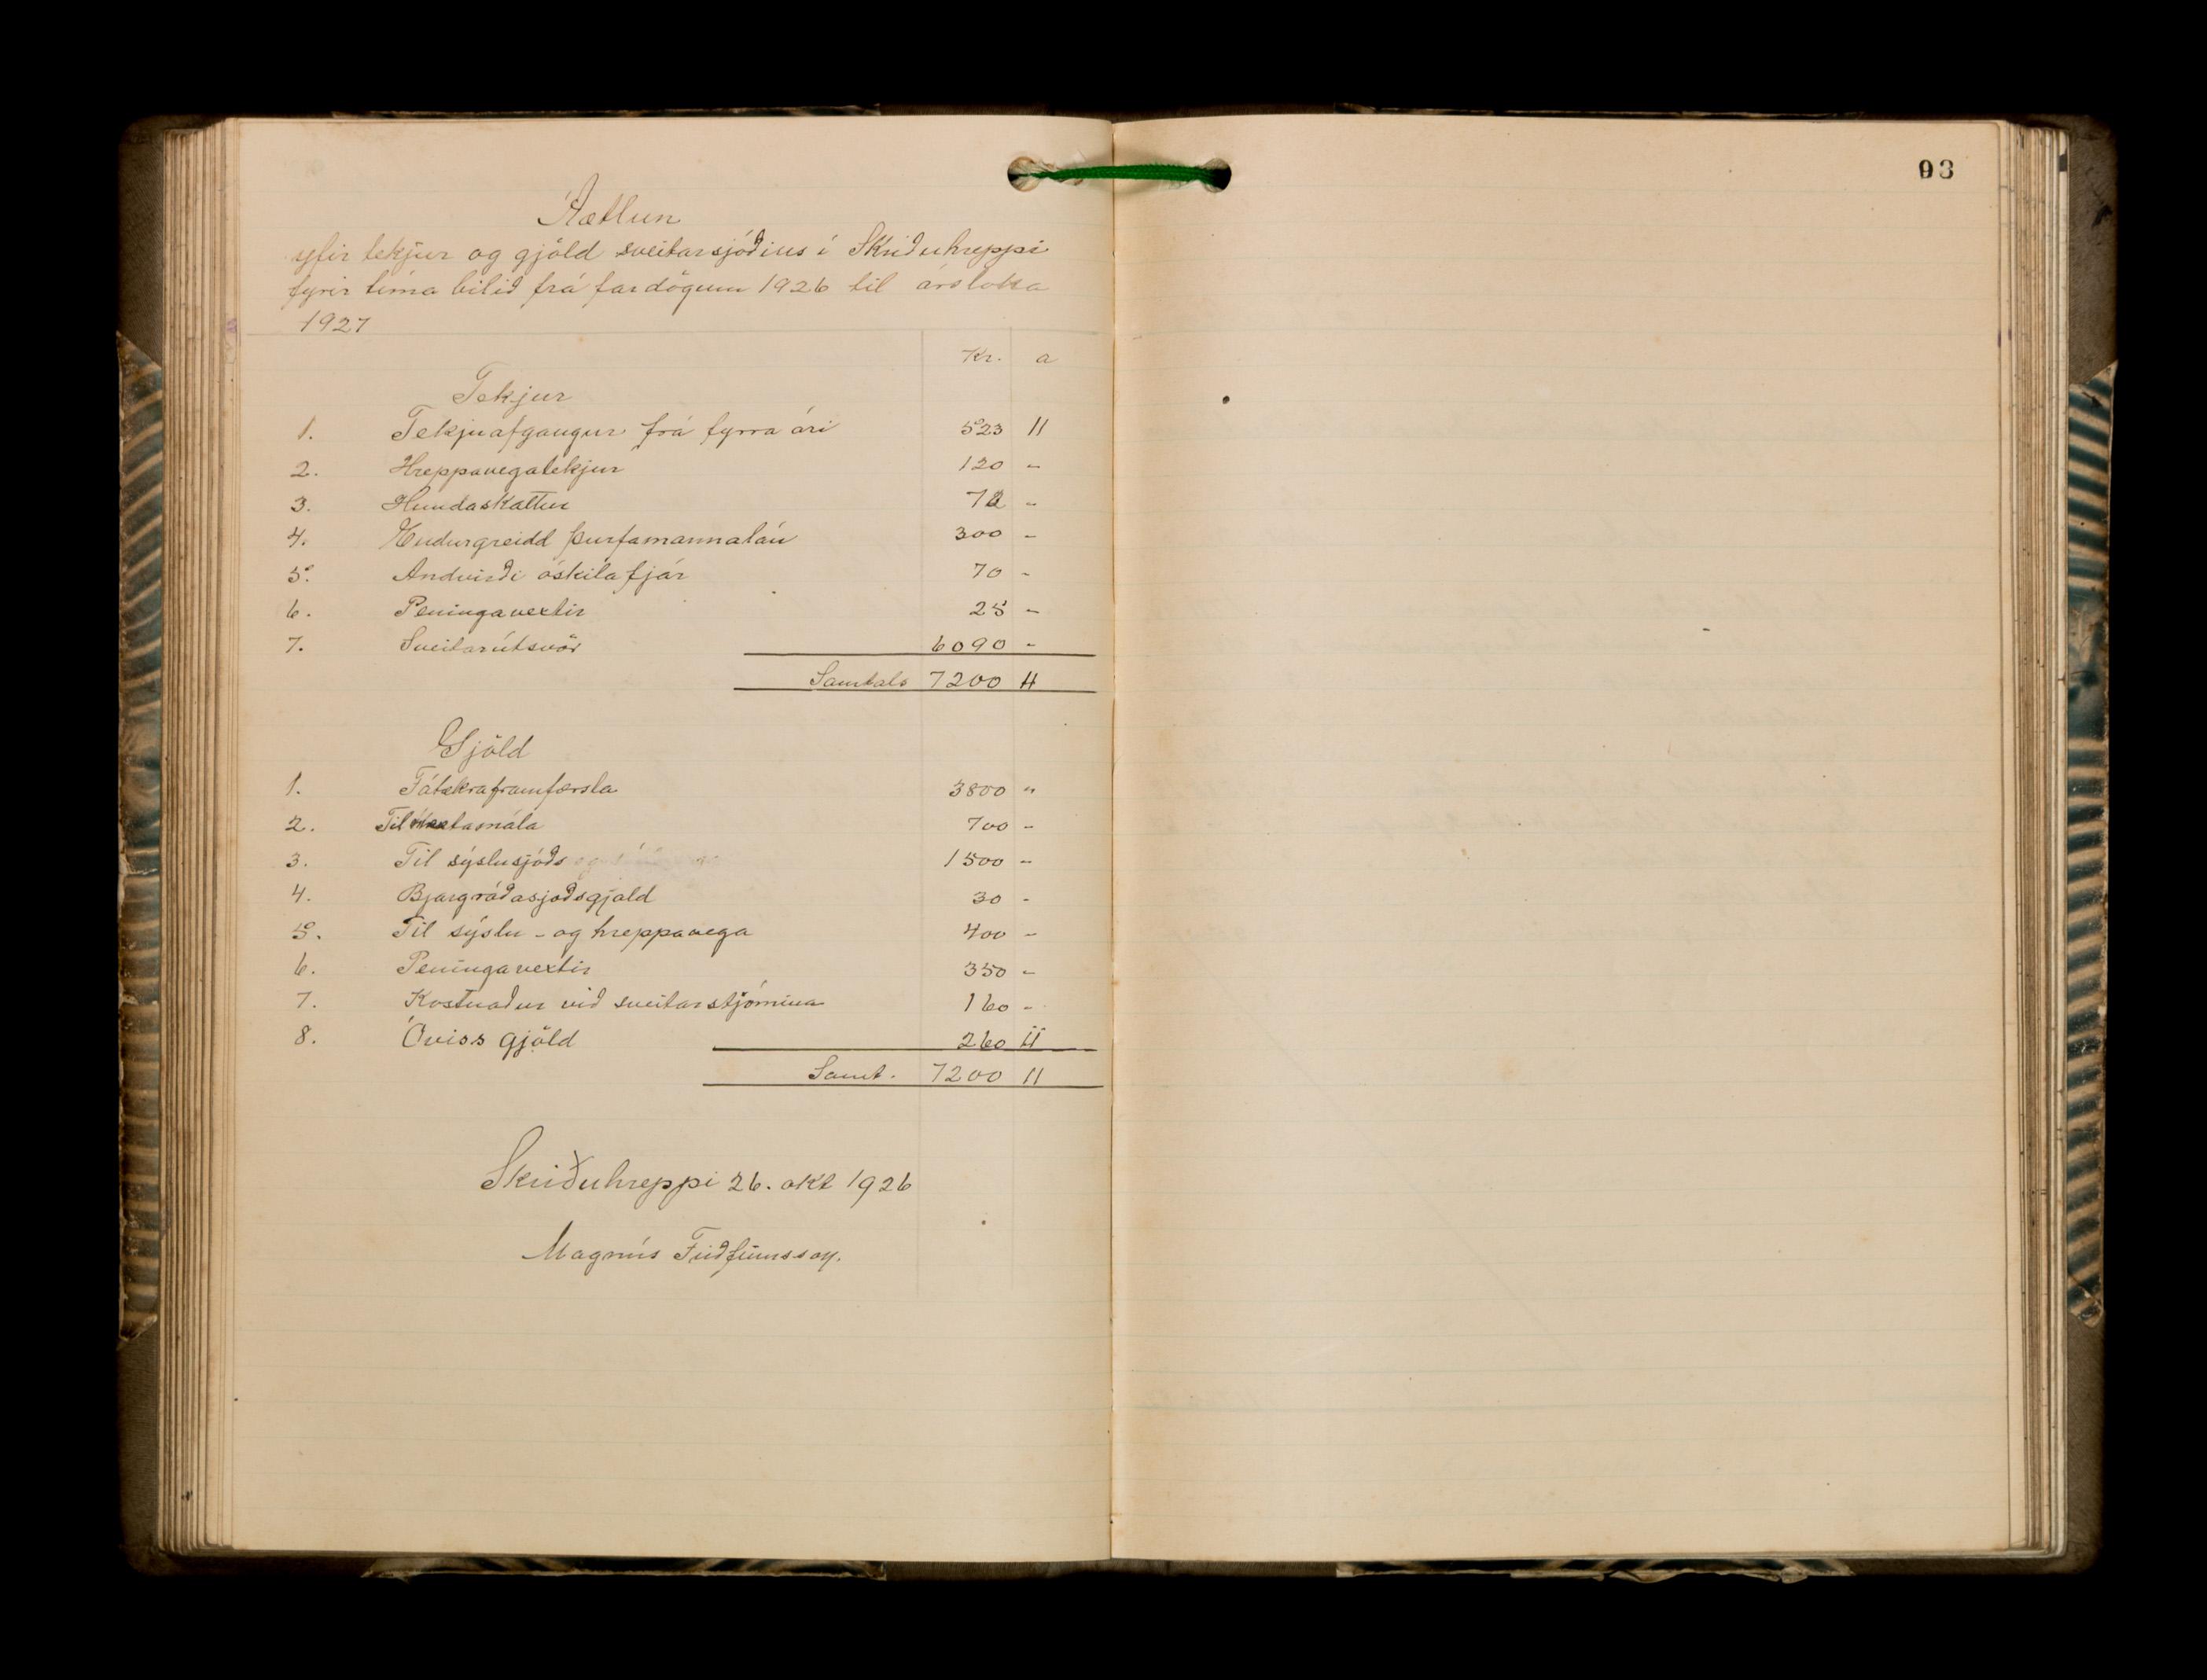 93
Áætlun
yfir tekjur og gjöld sveitarsjóðins í Skriðuhreppi
fyrir tíma bilið frá fardögum 1926 til ársloka
1927
Kr. a
Tekjur
1. Tekjuafgangur frá fyrra ári 523 "
2. Hreppavegatekjur 120 -
3. Hundaskattur 72 -
4. Endurgreidd þurfamannalán 300 -
5. Andvirði óskilafjár 70 -
6. Peningavextir 25 -
7. Sveitarútsvör 6090 -
Samtals 7200 "
Gjöld
1. Fátækraframfærsla 3800 "
2. Til 700 -
3. Til sýslusjóðs 1500 -
4. Bjargráðasjoðsgjald 30 -
5. Til sýslu - og hreppavega 400 -
6. Peningavextir 350 -
7. Kostnaður við sveitarstjórnina 160 -
8. Óviss gjöld 260 "
Samt. 7200 "
Skriðuhreppi 26. okt 1926
Magnús Friðfinnsson.